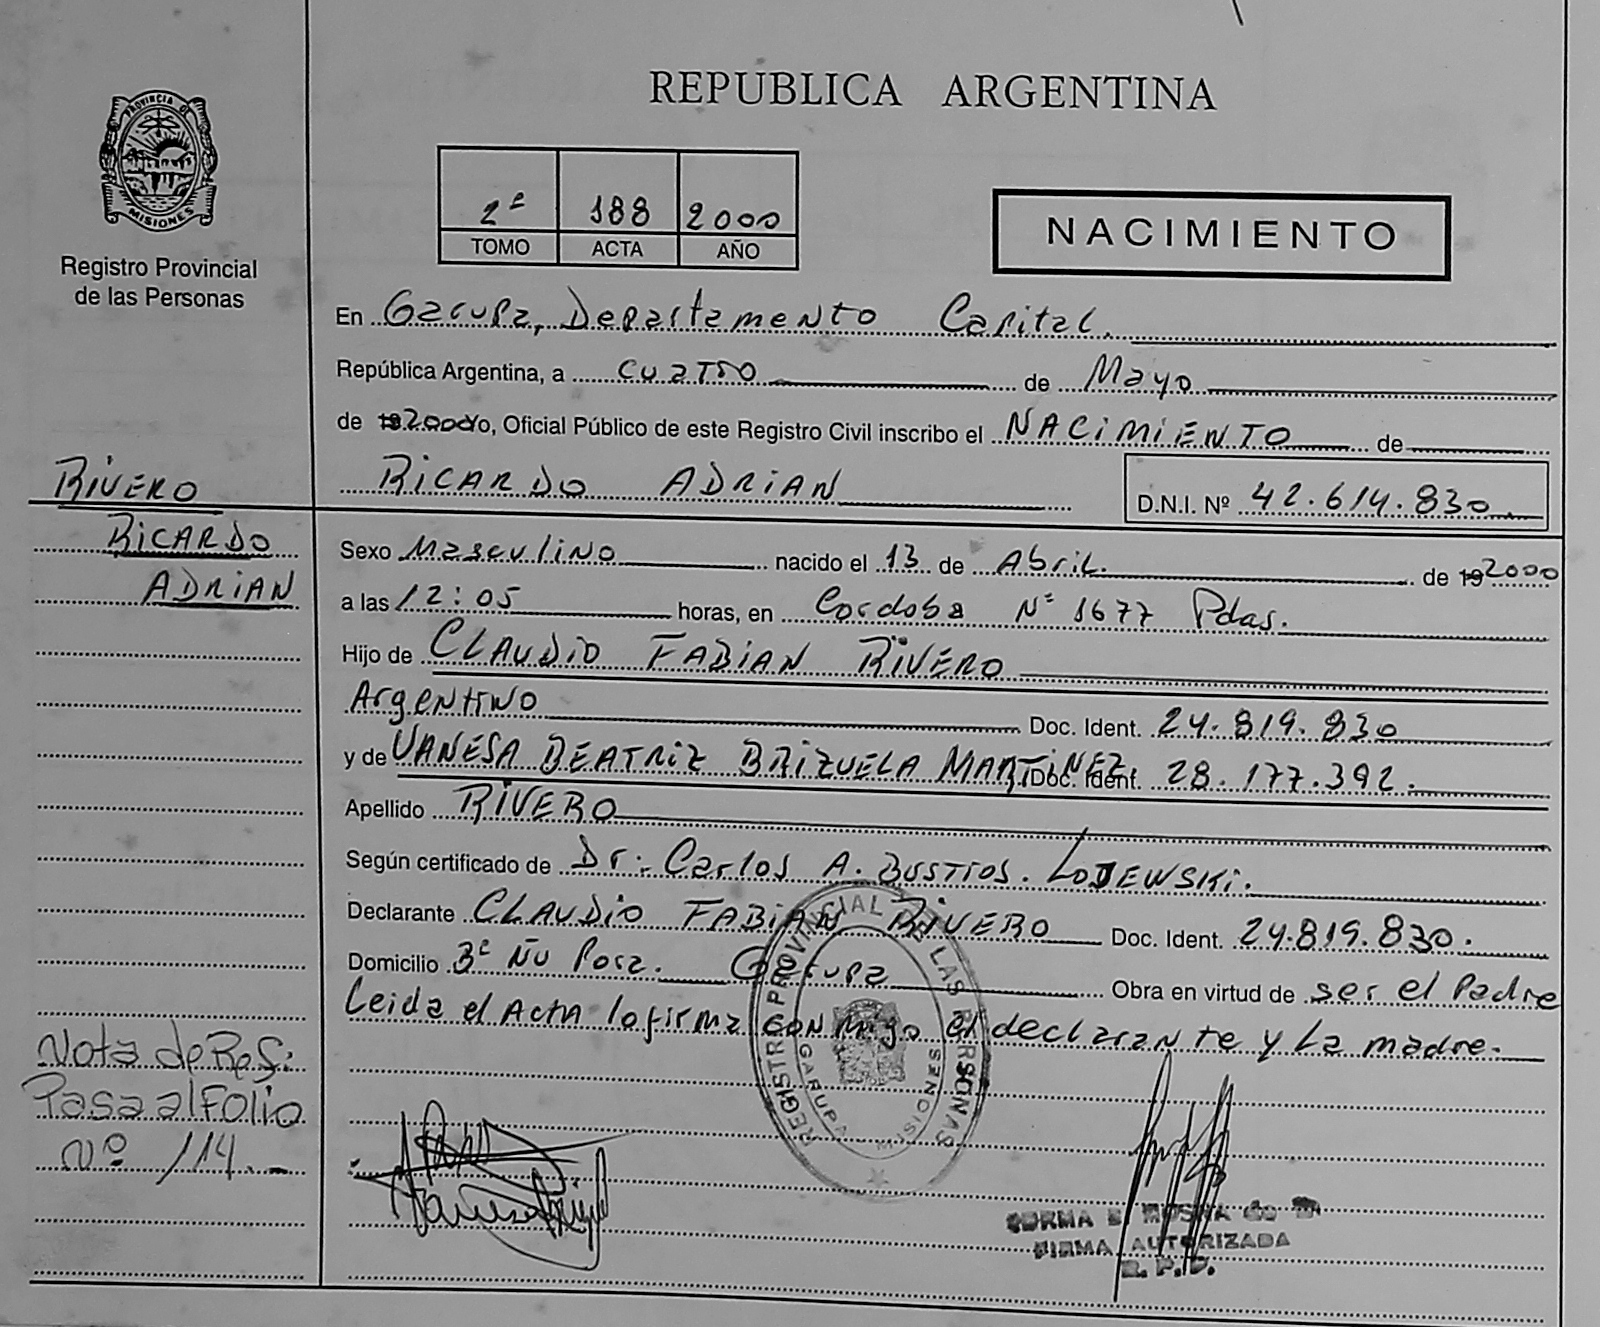 REPUBLICA ARGENTINA
PROVINCIA DE
MISIONES
Registro Provincial
de las Personas
2º 188 2000
TOMO ACTA AÑO
NACIMIENTO
En Garupa, Departamento Capital.
República Argentina, a cuatro de Mayo
de 19 2000 Yo, Oficial Público de este Registro Civil inscribo el NACIMIENTO de
RICARDO ADRIAN D.N.I. Nº 42.614.830
RIVERO
RICARDO
ADRIAN
Sexo Masculino nacido el 13 de Abril. de 19 2000
a las 12:05 horas, en Cordoba Nº 1677 Pdas.
Hijo de CLAUDIO FABIAN RIVERO
Argentino Doc. Ident. 24.819.830
y de VANESA BEATRIZ BRIZUELA MARTINEZ Doc. Ident. 28.177.392.
Apellido RIVERO
Según certificado de Dr. Carlos A. BUSTIOS. LODEWSKI.
Declarante CLAUDIO FABIAN RIVERO Doc. Ident. 24.819.830.
Domicilio Ñu Pora. Garupa Obra en virtud de ser el Padre
Leida el Acta lo firma conmigo el declarante y La madre.
Nota de Ref:
Pasa al Folio
Nº 114.-
REGISTRO PROVINCIAL DE LAS PERSONAS
GARUPA MISIONES
FIRMA AUTORIZADA
R. P. P.